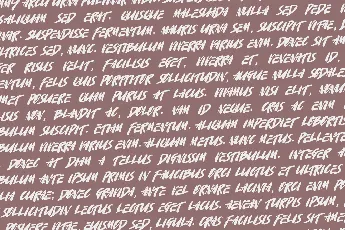 ARCU URNA
ALIQUAM SED ERAT. QUISQUE MALESUADA NULLA SED PEDE
SUSPENDISSE FERMENTUM. MAURIS URNA SEM, SUSCIPIT VITAE,
ULTRICES SED, NUNC. VESTIBULUM VIVERRA VARIUS ENIM. DONEC SIT
RISUS VELIT, FACILISIS EGET, VIVERRA ET, VENENATIS ID,
FELIS QUIS PORTTITOR SOLLICITUDIN, AUGUE NULLA SODALES
POSUERE QUAM PURUS AT LACUS. VIVAMUS NISI ELIT,
NON, BLANDIT AC, DOLOR. NAM ID NEQUE. CRAS AC ENIM
SUSCIPIT. ETIAM FERMENTUM. ALIQUAM IMPERDIET LOBORTIS
VIVERRA VARIUS ENIM. ALIQUAM METUS. NUNC METUS.
DONEC AT DIAM A TELLUS DIGNISSIM VESTIBULUM. INTEGER
ANTE IPSUM PRIMIS IN FAUCIBUS ORCI LUCTUS ET ULTRICES
CURAE; DONEC GRAVIDA, ANTE VEL ORNARE LACINIA, ORCI ENIM
SOLLICITUDIN LECTUS LECTUS EGET LACUS. AENEAN TURPIS IPSUM,
POSUERE VITAE, EUISMOD SED, LIGULA. CRAS FACILISIS FELIS SIT